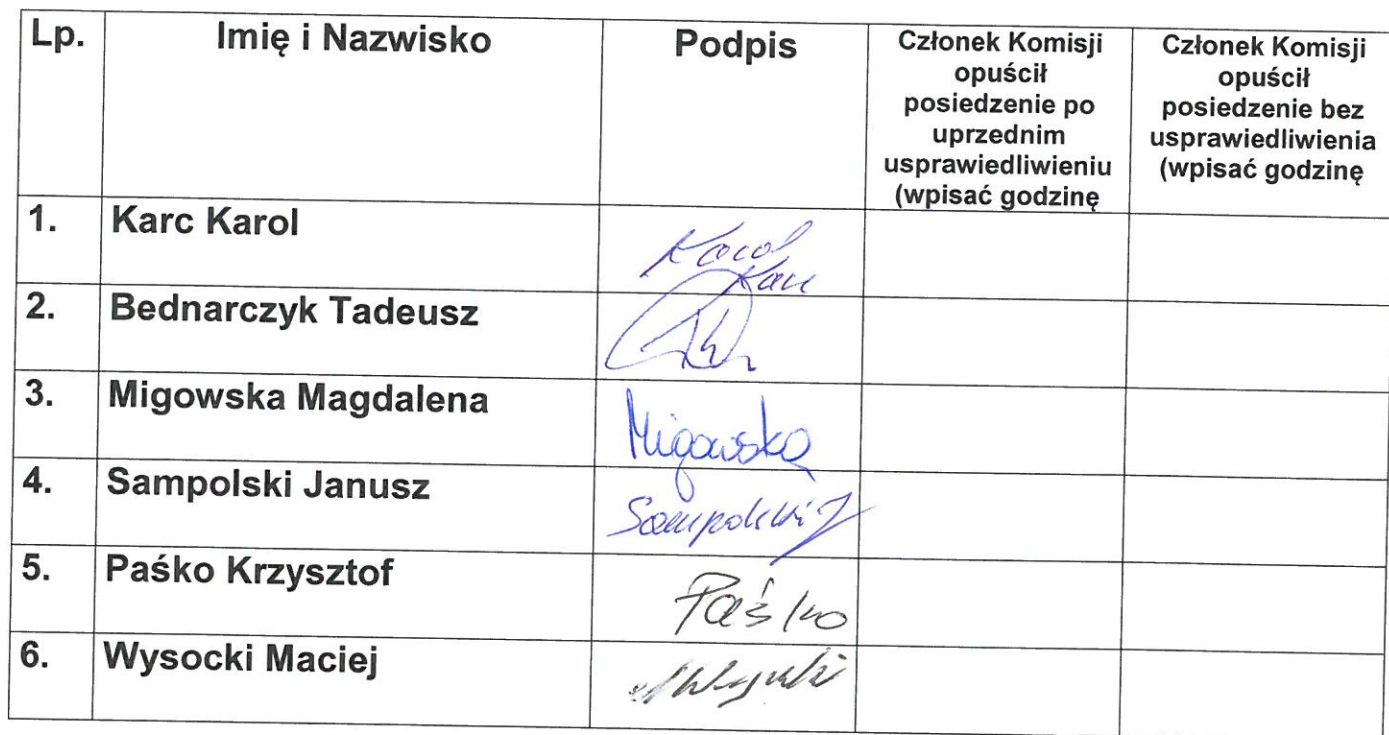 Lp.
Imię i Nazwisko
Podpis
Członek Komisji
opuścił
posiedzenie po
uprzednim
usprawiedliwieniu
(wpisać godzinę
Członek Komisji
opuścił
posiedzenie bez
usprawiedliwienia
(wpisać godzinę
1. Karc Karol
Karol
Karc
2. Bednarczyk Tadeusz
3. Migowska Magdalena Migowska
4. Sampolski Janusz Sampolski J
5. Paśko Krzysztof Paśko
6. Wysocki Maciej